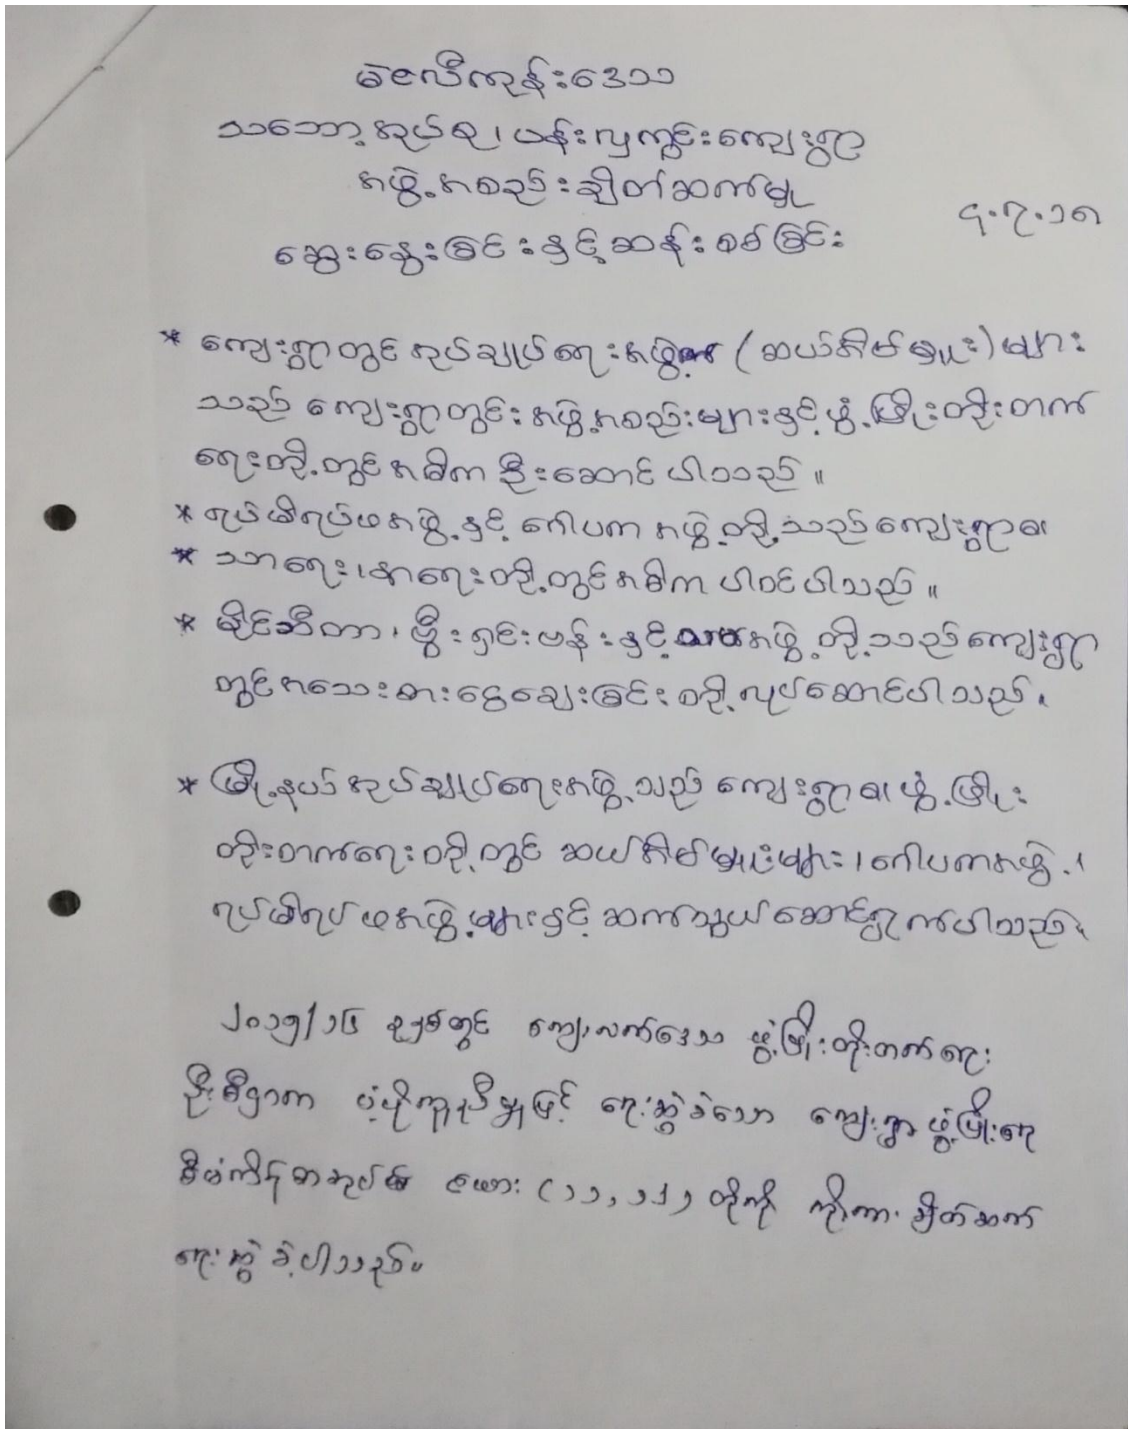 မဲဇလီကုန်းဒေသ
သဘော့အုပ်စု၊ ပန်းလှကွင်းကျေးရွာ
အဖွဲ့အစည်းချိတ်ဆက်မှု
၄.၇.၁၈
ဆွေးနွေးခြင်းနှင့်ဆန်းစစ်ခြင်း
* ကျေးရွာတွင် အုပ်ချုပ်ရေးအဖွဲ့ (ဆယ်အိမ်မှူး) များ
သည် ကျေးရွာတွင်းအဖွဲ့အစည်းများနှင့်ဖွံ့ဖြိုးတိုးတက်
ရေးတို့တွင်အဓိကဦးဆောင်ပါသည်။
* ရပ်မိရပ်ဖအဖွဲ့နှင့် ဂေါပကအဖွဲ့တို့သည်ကျေးရွာ၏
* သာရေး၊နာရေးတို့တွင်အဓိကပါဝင်ပါသည်။
* မိုင်ဆီတာ၊ မွှီးရှင်းပန်းနှင့် အဖွဲ့တို့သည်ကျေးရွာ
တွင်အသေးစားငွေချေးခြင်းတို့လုပ်ဆောင်ပါသည်။
* မြို့နယ်အုပ်ချုပ်ရေးအဖွဲ့သည် ကျေးရွာ၏ဖွံ့ဖြိုး
တိုးတက်ရေးတို့တွင် ဆယ်အိမ်မှူးများ၊ဂေါပကအဖွဲ့၊
ရပ်မိရပ်ဖအဖွဲ့များနှင့်ဆက်သွယ်ဆောင်ရွက်ပါသည်။
၂၀၁၅/၁၆ ခုနှစ်တွင် ကျေးလက်ဒေသ ဖွံ့ဖြိုးတိုးတက်ရေး
ဦးစီဌာက ပံ့ပိုးကူညီမှုဖြင့် ရေးဆွဲခဲ့သော ကျေးရွာဖွံ့ဖြိုးရေး
စီမံကိန်းစာအုပ်၏ ဇယား (၁၁,၁၂) တို့ကို ကိုးကား ချိတ်ဆက်
ရေးဆွဲခဲ့ပါသည်။